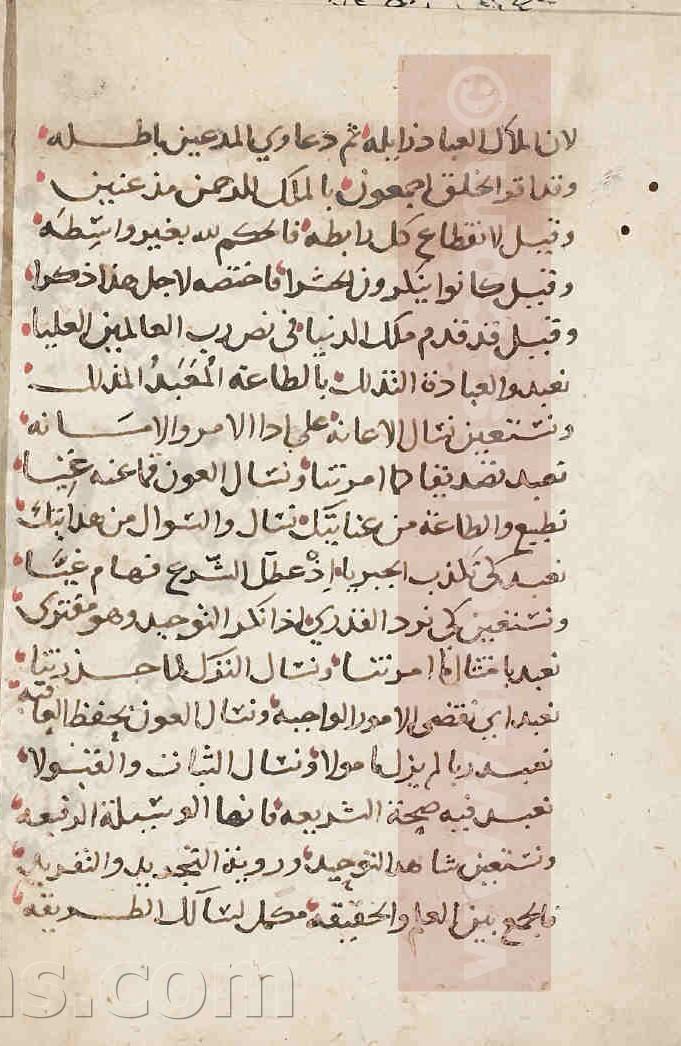 لان املاك العباد زايله ثم دعاوي المدعين باطله
الخلق اجمعون بالملك للرحمن مذعنين
وقيل لانقطاع كل رابطه فالحكم لله بغير واسِطَه
وقيل كانوا ينكرون الحشرا فاختصه لاجل هذا ذكرا
وقيل قد قدم ملك الدنيا في نص رب العالمين العليا
نعبد والعبادة التذلل بالطاعة المُعَبَدُ المذلل
ونستعين نسال الاعانه على ادا الامر والامسانه
نعبد تصديقا لما امرتنا ونسال العون فما عنه غِنا
نطيع والطاعة من عنايتك نسال والسوال من هدايتك
نعبد كي نكذب الجبريا اِذْ عطل الشرع فهام غيّا
ونستعين كي نرد القدري اذ انكر التوحيد وهو مفتري
نعبد بامتثال ما امرتنا ونسال لما حذرتنا
نعبد اي نقضي الامور الواجبه ونسال العون بحفظ العاقبه
نعبد ربا لم يزل مولا ونسال الثبات والقبولا
نعبد فيه صحة الشريعه فانها الوسيلة الرفيعه
ونستعين شاهد التوحيد وروية التجريد والتفريد
فالجمع بين العلم والحقيقه مكمل لسالك الطريقه
ns.com